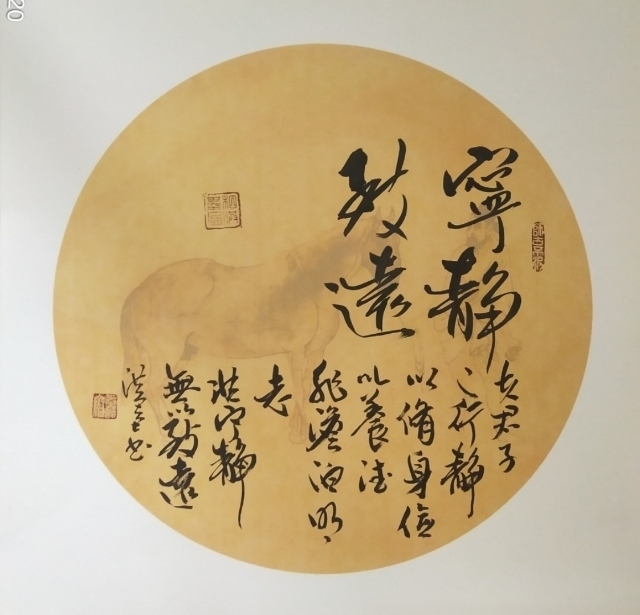 寧靜
致遠
夫君子
之行靜
以脩身儉
以養德
非澹泊明
志
非宁靜
無以致遠
20